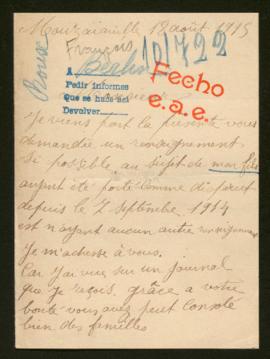 Mouzaiaville 12 août 1915
François
10722
Roux
A Berlin
Pedir informes
Que se hace así
Devolver
Fecho
e.a.e.
Je viens part la presente vous
demandée un renseignement
Si possible au sujet de mon fils
ayant été porté comme disparut
depuis le 7 Septembre 1914
est n'ayant aucun autre renseignement
Je m'adresse à vous.
Car j'ai vue sur un journal
que je reçois grâce a votre
bonté vous avez peut consolé
bien des familles